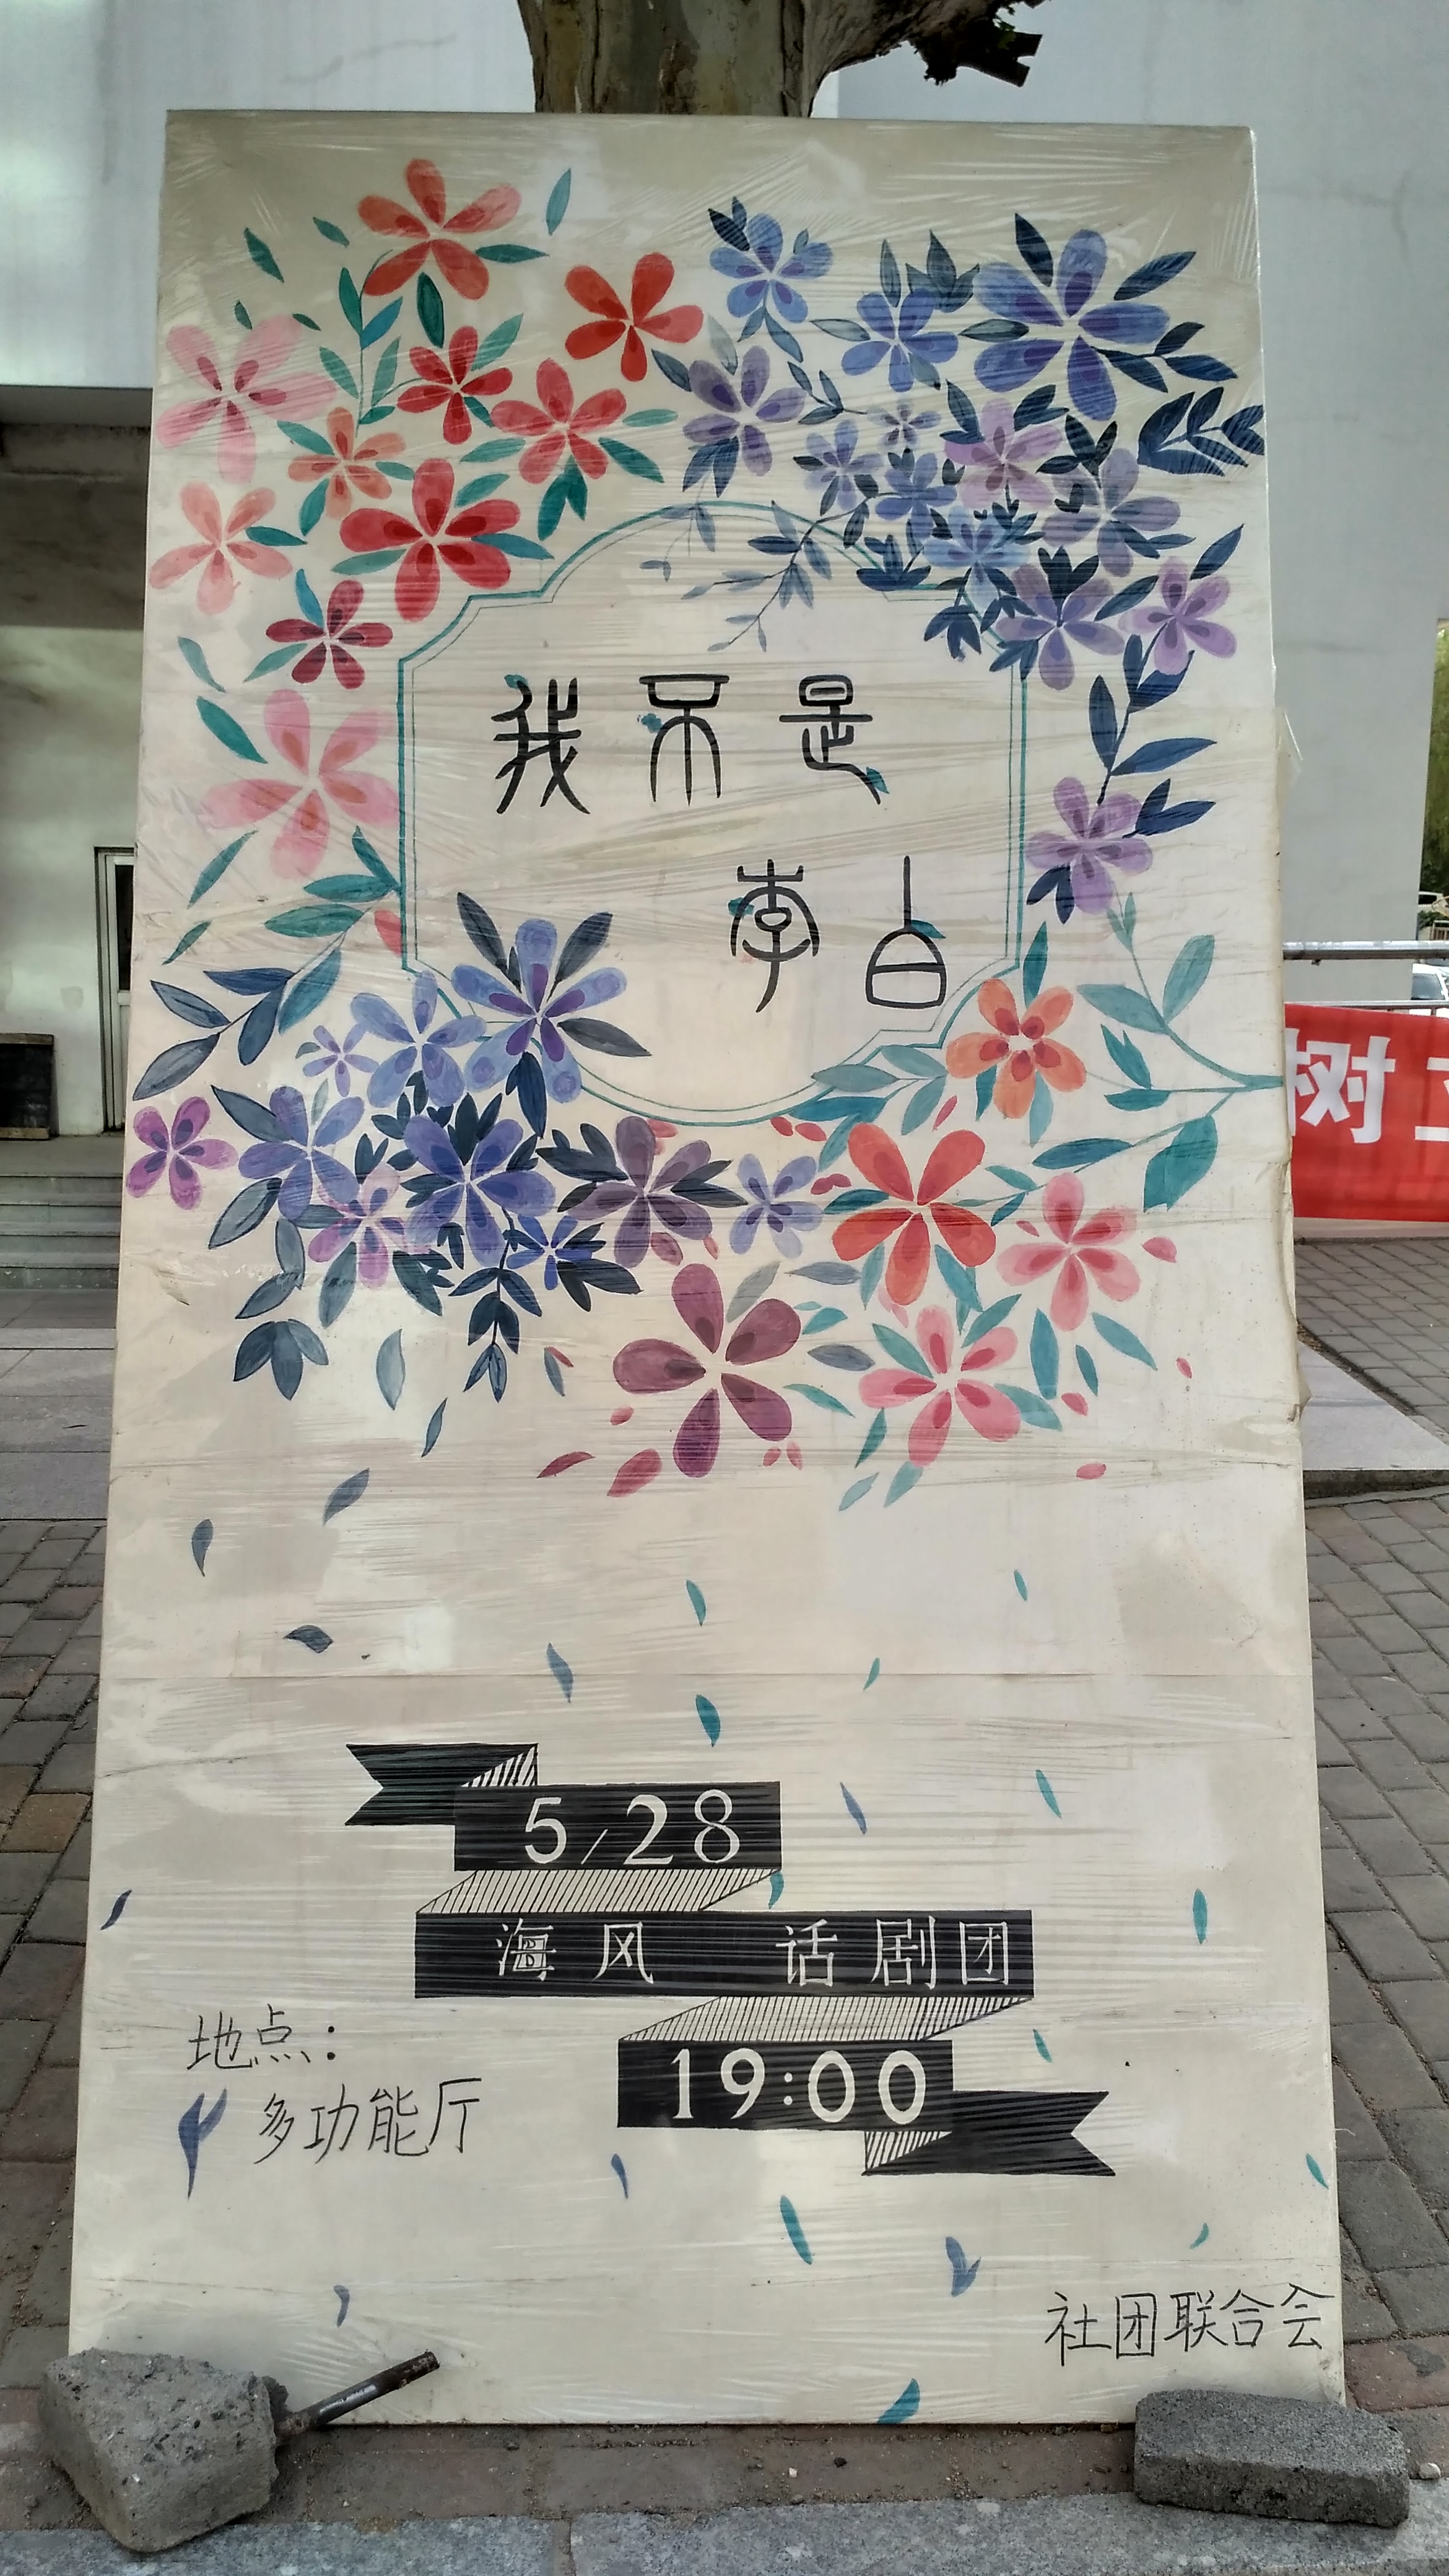 我不是
李白
5/28
海风 话剧团
19:00
地点：
多功能厅
社团联合会
树